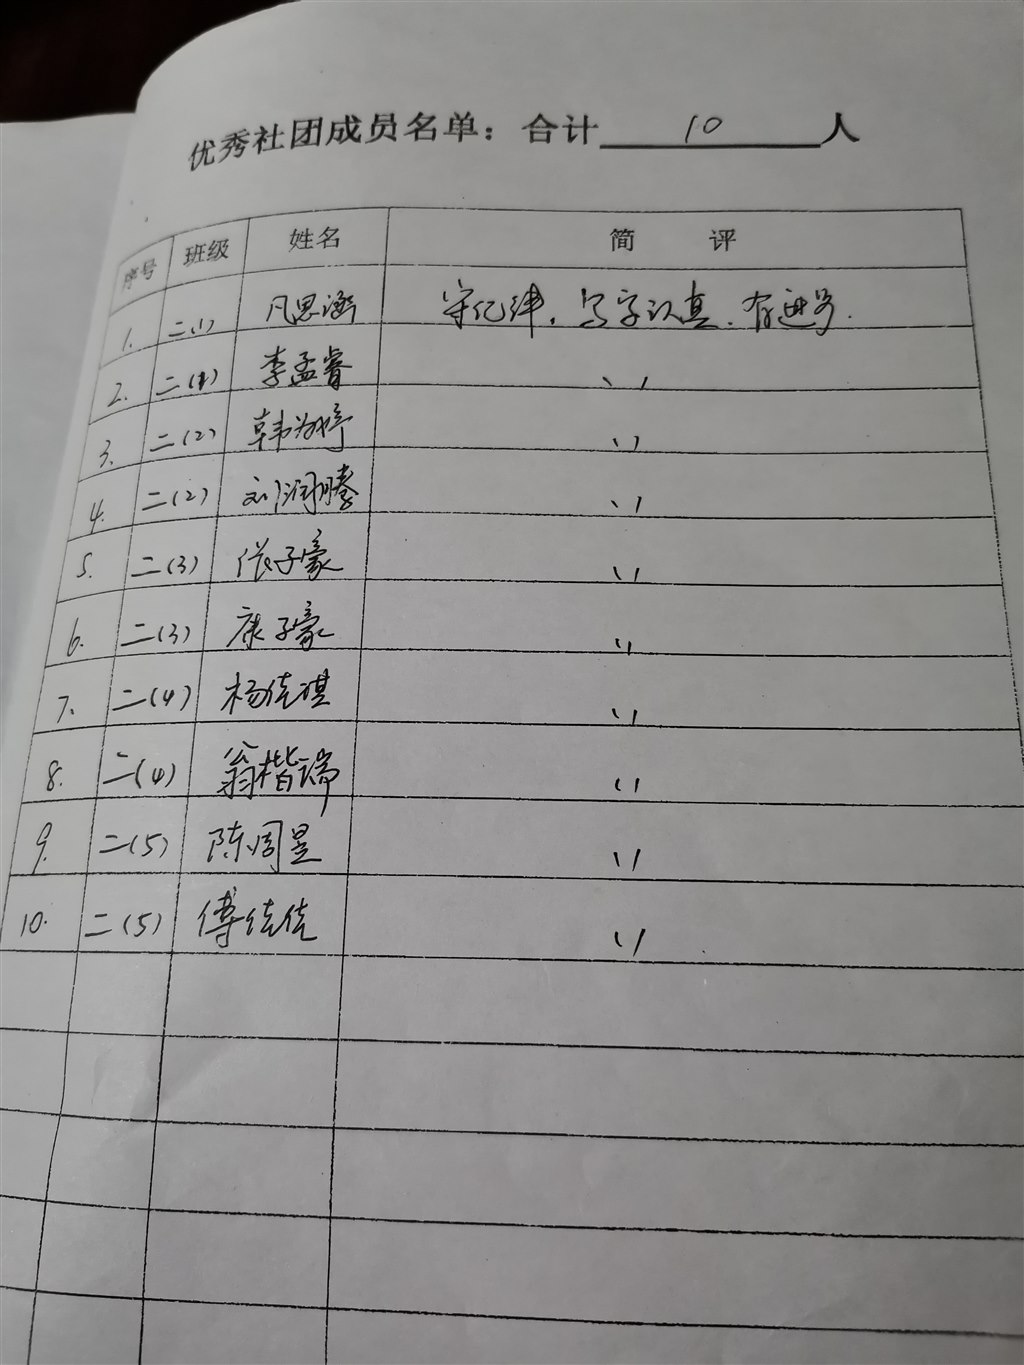 优秀社团成员名单：合计 10 人
序号 班级 姓名 简 评
1. 二(1) 凡思涵 守纪律，写字认真，有进步.
2. 二(1) 李孟睿 〃
3. 二(2) 韩为婷 〃
4. 二(2) 刘润腾 〃
5. 二(3) 张子豪 〃
6. 二(3) 康子豪 〃
7. 二(4) 杨佳琪 〃
8. 二(4) 翁楷瑞 〃
9. 二(5) 陈周昱 〃
10. 二(5) 傅佳佳 〃